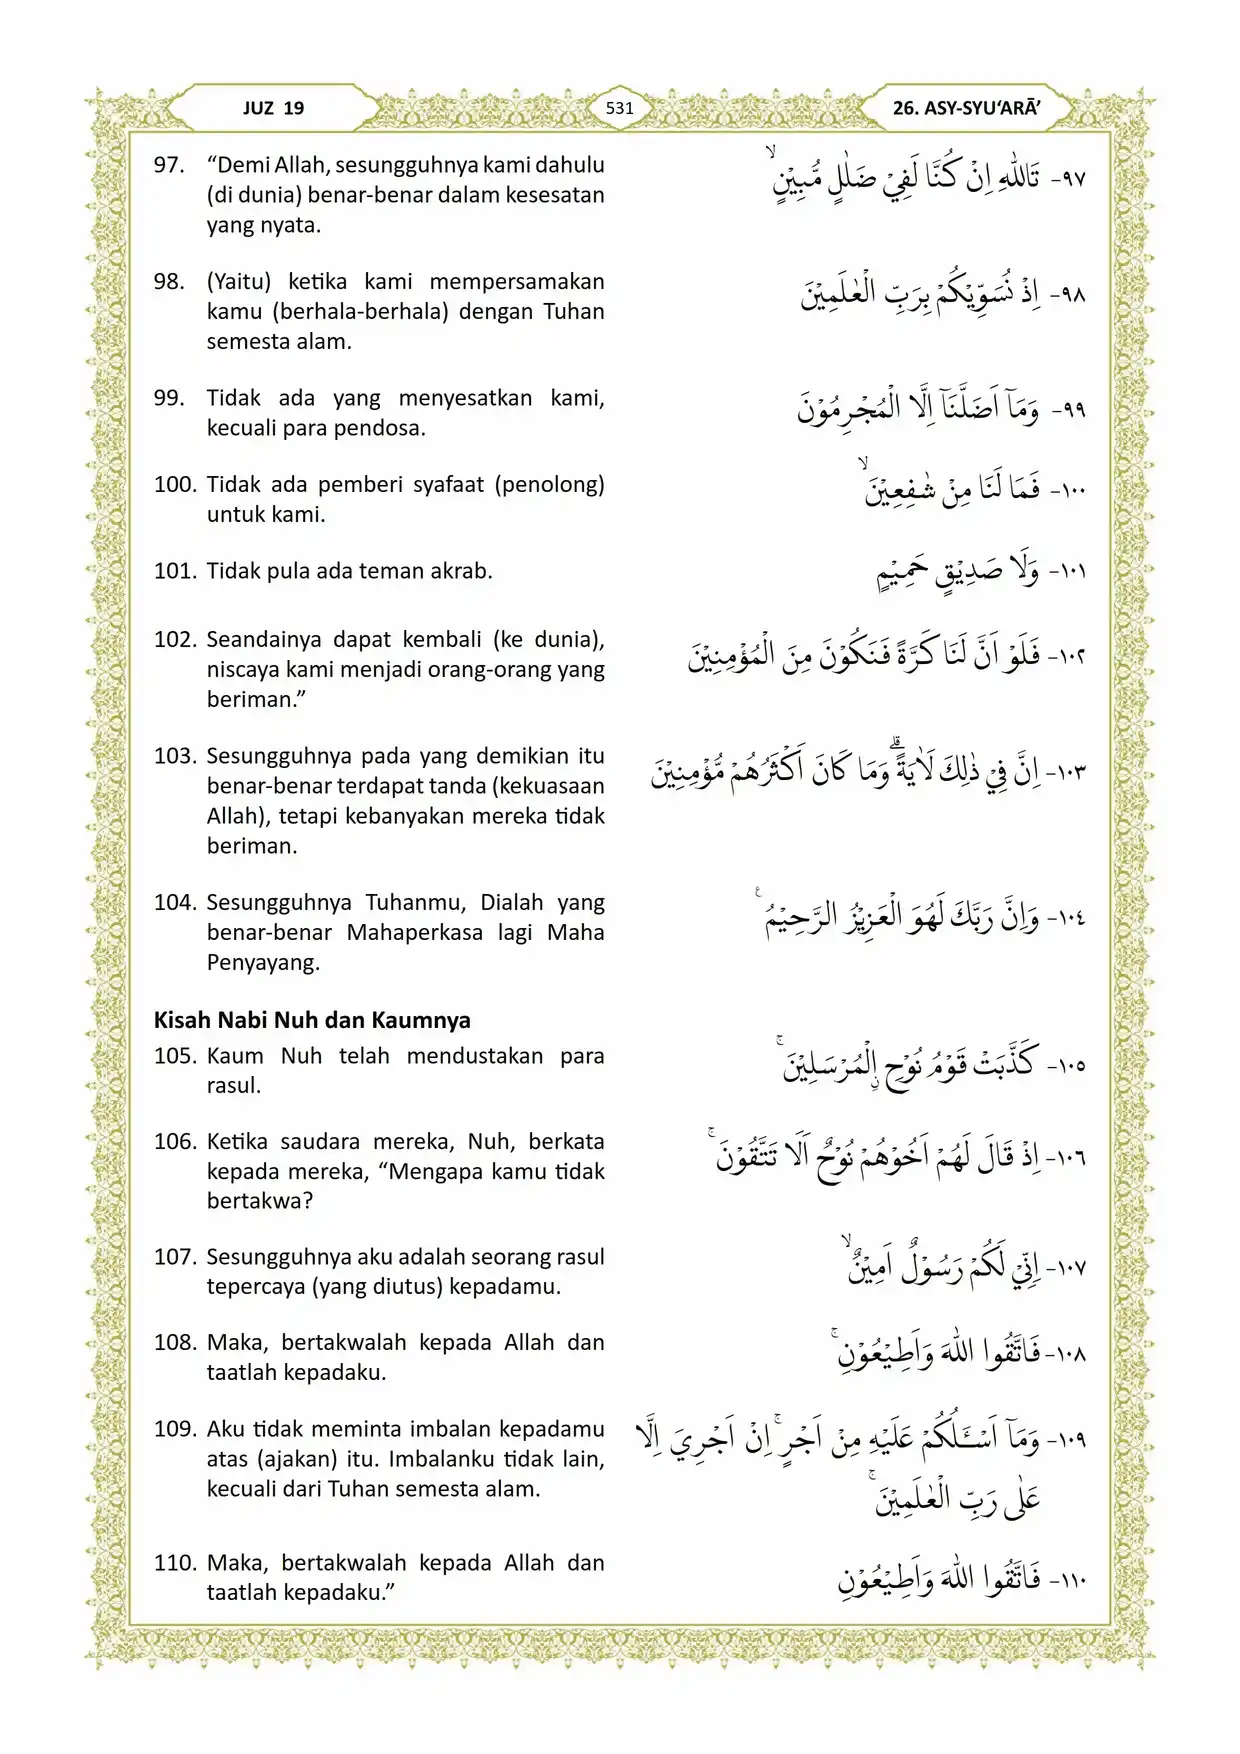 JUZ 19
531
26. ASY-SYU‘ARĀ’
97. “Demi Allah, sesungguhnya kami dahulu
(di dunia) benar-benar dalam kesesatan
yang nyata.
٩٧- تَاللّٰهِ اِنْ كُنَّا لَفِيْ ضَلٰلٍ مُّبِيْنٍۙ
98. (Yaitu) ketika kami mempersamakan
kamu (berhala-berhala) dengan Tuhan
semesta alam.
٩٨- اِذْ نُسَوِّيْكُمْ بِرَبِّ الْعٰلَمِيْنَ
99. Tidak ada yang menyesatkan kami,
kecuali para pendosa.
٩٩- وَمَآ اَضَلَّنَآ اِلَّا الْمُجْرِمُوْنَ
100. Tidak ada pemberi syafaat (penolong)
untuk kami.
١٠٠- فَمَا لَنَا مِنْ شٰفِعِيْنَۙ
101. Tidak pula ada teman akrab.
١٠١- وَلَا صَدِيْقٍ حَمِيْمٍ
102. Seandainya dapat kembali (ke dunia),
niscaya kami menjadi orang-orang yang
beriman.”
١٠٢- فَلَوْ اَنَّ لَنَا كَرَّةً فَنَكُوْنَ مِنَ الْمُؤْمِنِيْنَ
103. Sesungguhnya pada yang demikian itu
benar-benar terdapat tanda (kekuasaan
Allah), tetapi kebanyakan mereka tidak
beriman.
١٠٣- اِنَّ فِيْ ذٰلِكَ لَاٰيَةًۗ وَمَا كَانَ اَكْثَرُهُمْ مُّؤْمِنِيْنَ
104. Sesungguhnya Tuhanmu, Dialah yang
benar-benar Mahaperkasa lagi Maha
Penyayang.
١٠٤- وَاِنَّ رَبَّكَ لَهُوَ الْعَزِيْزُ الرَّحِيْمُ ࣖ
Kisah Nabi Nuh dan Kaumnya
105. Kaum Nuh telah mendustakan para
rasul.
١٠٥- كَذَّبَتْ قَوْمُ نُوْحِ ِۨالْمُرْسَلِيْنَۚ
106. Ketika saudara mereka, Nuh, berkata
kepada mereka, “Mengapa kamu tidak
bertakwa?
١٠٦- اِذْ قَالَ لَهُمْ اَخُوْهُمْ نُوْحٌ اَلَا تَتَّقُوْنَۚ
107. Sesungguhnya aku adalah seorang rasul
tepercaya (yang diutus) kepadamu.
١٠٧- اِنِّيْ لَكُمْ رَسُوْلٌ اَمِيْنٌۙ
108. Maka, bertakwalah kepada Allah dan
taatlah kepadaku.
١٠٨- فَاتَّقُوا اللّٰهَ وَاَطِيْعُوْنِۚ
109. Aku tidak meminta imbalan kepadamu
atas (ajakan) itu. Imbalanku tidak lain,
kecuali dari Tuhan semesta alam.
١٠٩- وَمَآ اَسْـَٔلُكُمْ عَلَيْهِ مِنْ اَجْرٍۚ اِنْ اَجْرِيَ اِلَّا
عَلٰى رَبِّ الْعٰلَمِيْنَۚ
110. Maka, bertakwalah kepada Allah dan
taatlah kepadaku.”
١١٠- فَاتَّقُوا اللّٰهَ وَاَطِيْعُوْنِ